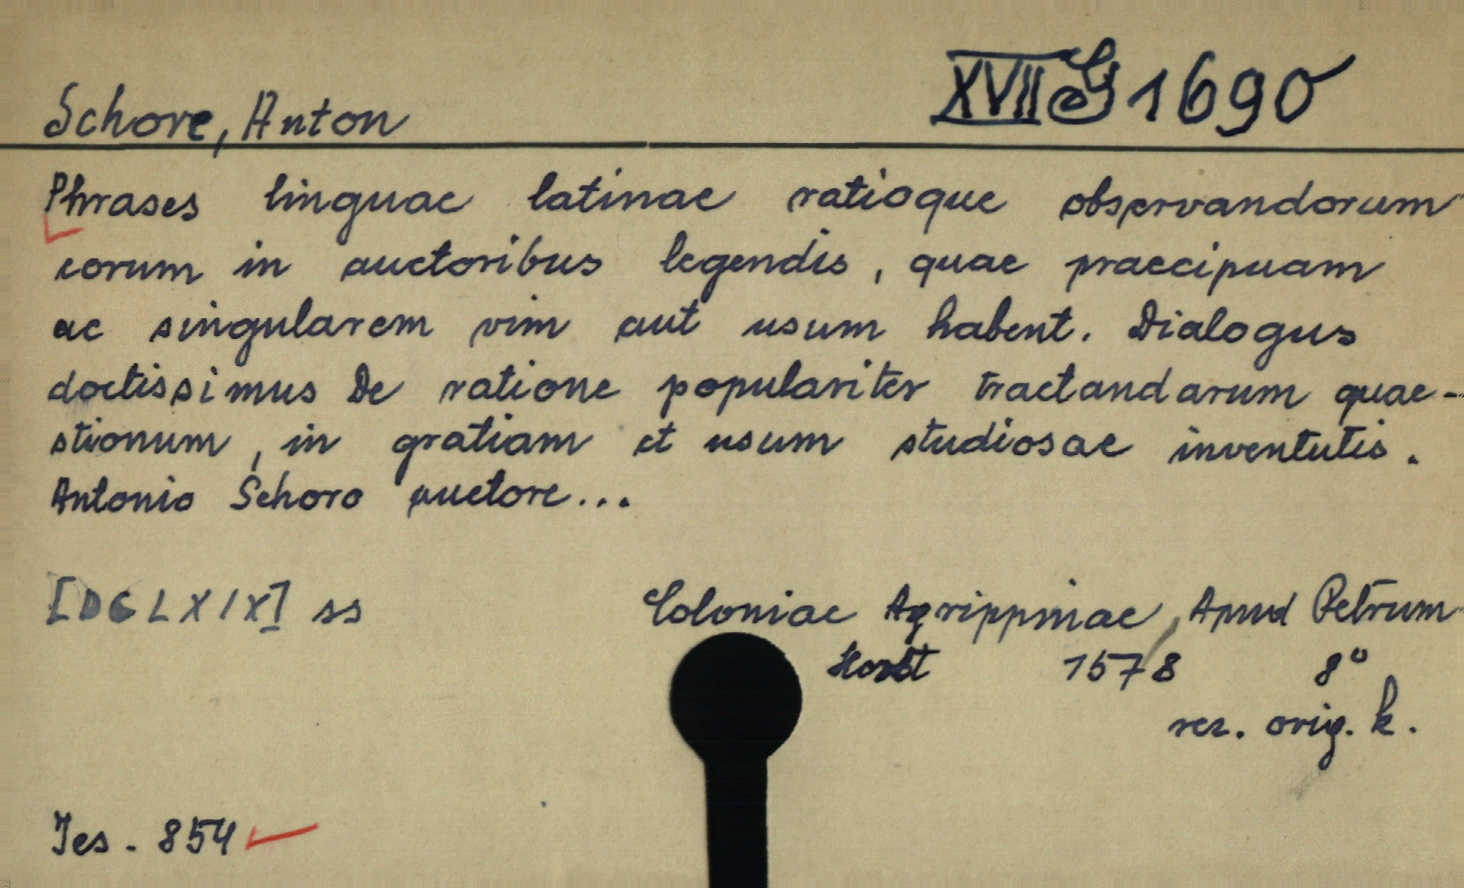 XVII G 1690
Schore, Anton
Phrases linguae latinae ratioque observandorum
eorum in auctoribus legendis, quae praecipuam
ac singularem vim aut usum habent. Dialogus
doctissimus De ratione populariter tractandarum quae-
stionum, in gratiam et usum studiosae inventutis.
Antonio Schoro auctore...
[DCLXIX] ss
Coloniae Agrippinae, Apud Petrum
Horst 1578 8°
rez. orig. k.
Jes. 854